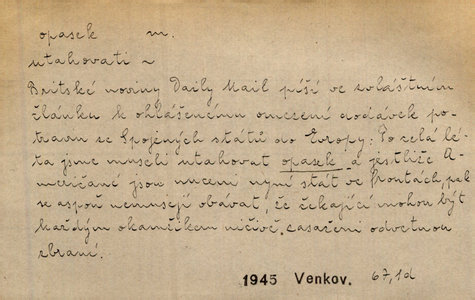 opasek m.
utahovati ~
Britské noviny Daily Mail píší ve zvláštním
článku k ohlášenému omezení dodávek po-
travin ze Spojených států do Evropy: Po celá lé-
ta jsme museli utahovat opasek a jestliže A-
meričané jsou nuceni nyní stát ve frontách, pak
se aspoň nemusejí obávat, že čekající mohou být
každým okamžikem ničivě zasaženi odvetnou
zbraní.
1945 Venkov. 67,1d